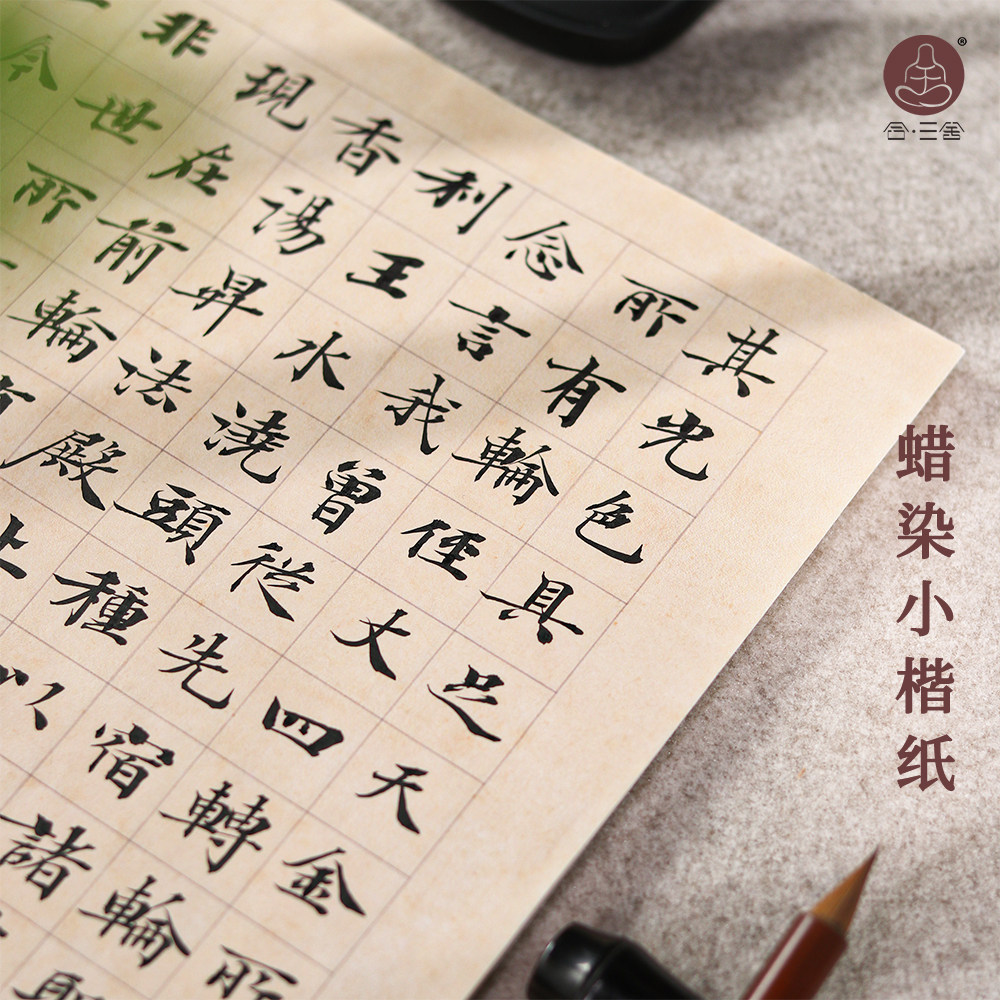 其光色具足天金所
所有輪径丈四轉輪聖
念言我曾從先宿諸
利王水澆頭種以
香湯昇法殿上
現在前輪
非世所
蜡染小楷纸